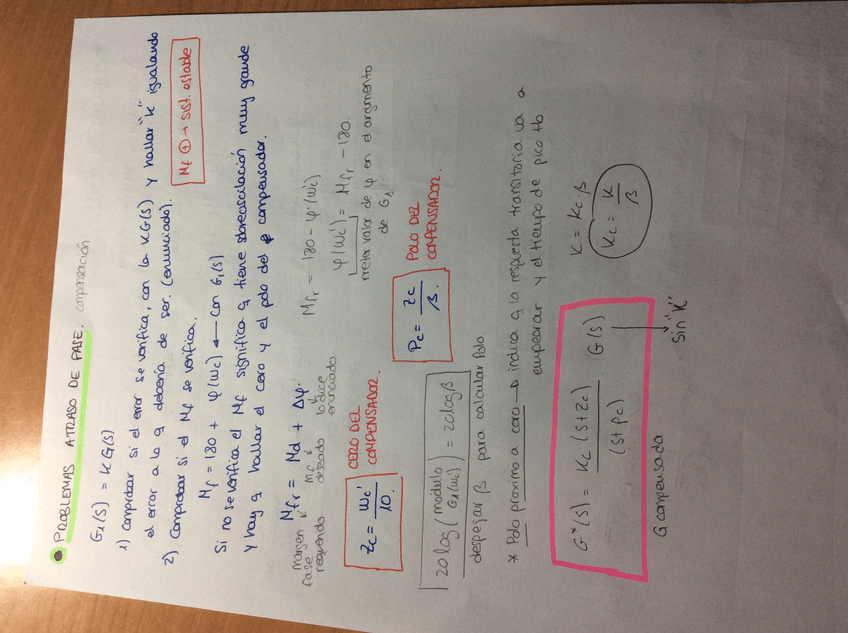 PROBLEMAS ATRASO DE FASE. compensación
G₁(s) = K G(s)
1) Comprobar si el error se verifica, con la KG(s) y hallar "K" igualando
el error a lo q debería de ser. (enunciado).
2) Comprobar si el Mf se verifica.
Mf ⊕ → sist. estable
Mf = 180 + φ(ωc) ← con G₁(s)
Si no se verifica el Mf significa q tiene sobreoscilación muy grande
y hay q hallar el cero y el polo del compensador.
Mfr = Md + Δφ.
Margen fase requerido
Mf deseado
lo dice enunciado
Mfr = 180 - φ·(ωc')
φ(ωc') = Mfr - 180.
meter valor de φ en el argumento
de G₁
Zc = ωc'/10.
CERO DEL
COMPENSADOR.
Pc = Zc/β.
POLO DEL
COMPENSADOR.
20 log (modulo G₁(ωc')) = 20 log β
despejar β para calcular Polo
* Polo proximo a cero → indica q la respuesta transitoria va a
empeorar y el tiempo de pico tb
G*(s) = Kc (s+Zc)/(s+Pc) G(s)
K = Kc β
Kc = K/β
G compensada
sin "K"